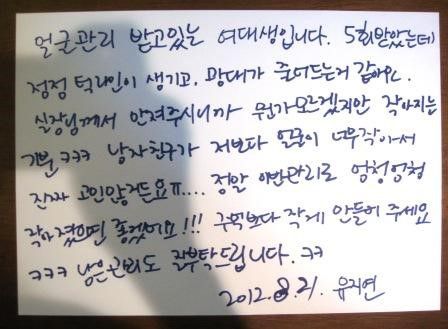 얼굴관리 받고있는 여대생입니다. 5회받았는데
점점 턱라인이 생기고, 광대가 줄어드는거 같아요.
실장님께서 만져주시니까 뭔가모르겠지만 작아지는
기분 ㅋㅋㅋ 남자친구가 저보다 얼굴이 너무작아서
진짜 고민이많거든요ㅠ.... 정말 이번관리로 엄청엄청
작아졌으면 좋겠어요!!! 주먹보다 작게 만들어 주세요
ㅋㅋㅋ 남은관리도 잘부탁드립니다. ㅋㅋ
2012. 8. 21. 유지연